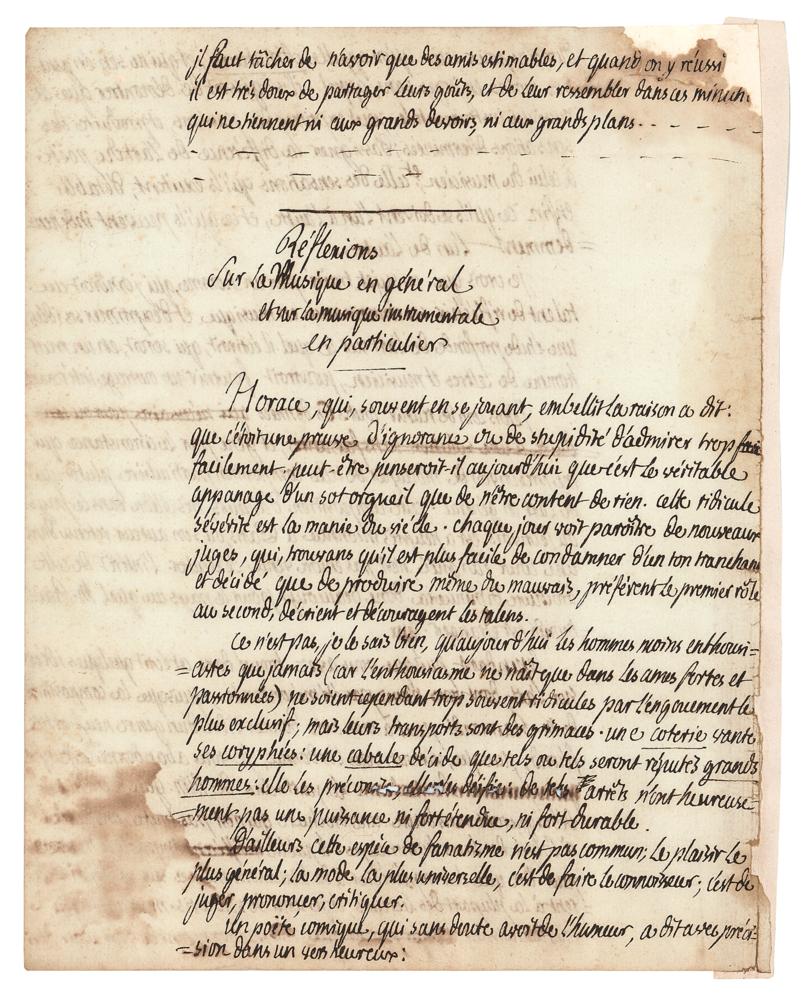 il faut tâcher de n'avoir que des amis estimables, et quand on y réussi
il est très doux de partager leurs goûts, et de leur ressembler dans ces minuti
qui ne tiennent ni aux grands devoirs, ni aux grands plans. - - - -
Réflexions
Sur la Musique en général
et sur la musique instrumentale
en particulier
Horace, qui, souvent en se jouant, embellit la raison a dit:
que c'étoit une preuve d'ignorance ou de stupidité d'admirer trop
facilement. peut-être penseroit-il aujourd'hui que c'est le véritable
appanage d'un sot orgueil que de n'être content de rien. cette ridicule
sévérité est la manie du siécle. chaque jour voit paroître de nouveaux
juges, qui, trouvans qu'il est plus facile de condamner d'un ton tranchant
et décidé que de produire même du mauvais, préférent le premier rôle
au second, décrient et découragent les talens.
Ce n'est pas, je le sais bien, qu'aujourd'hui les hommes moins enthousi=
=astes que jamais (car l'enthousiasme ne naît que dans les ames fortes et
passionnées) ne soient cependant trop souvent ridicules par l'engouement le
plus exclusif; mais leurs transports sont des grimaces. une coterie vante
ses coryphées: une cabale décide que tels ou tels seront réputés grands
hommes: elle les préconise, elle les déifie: de tels arrêts n'ont heureuse=
=ment pas une puissance ni fort étendue, ni fort durable.
D'ailleurs cette espèce de fanatisme n'est pas commun; le plaisir le
plus général; la mode la plus universelle, c'est de faire le connoisseur; c'est de
juger, prononcer, critiquer.
Un poëte comique, qui sans doute avoit de l'humeur, a dit avec préci=
=sion dans un vers heureux: